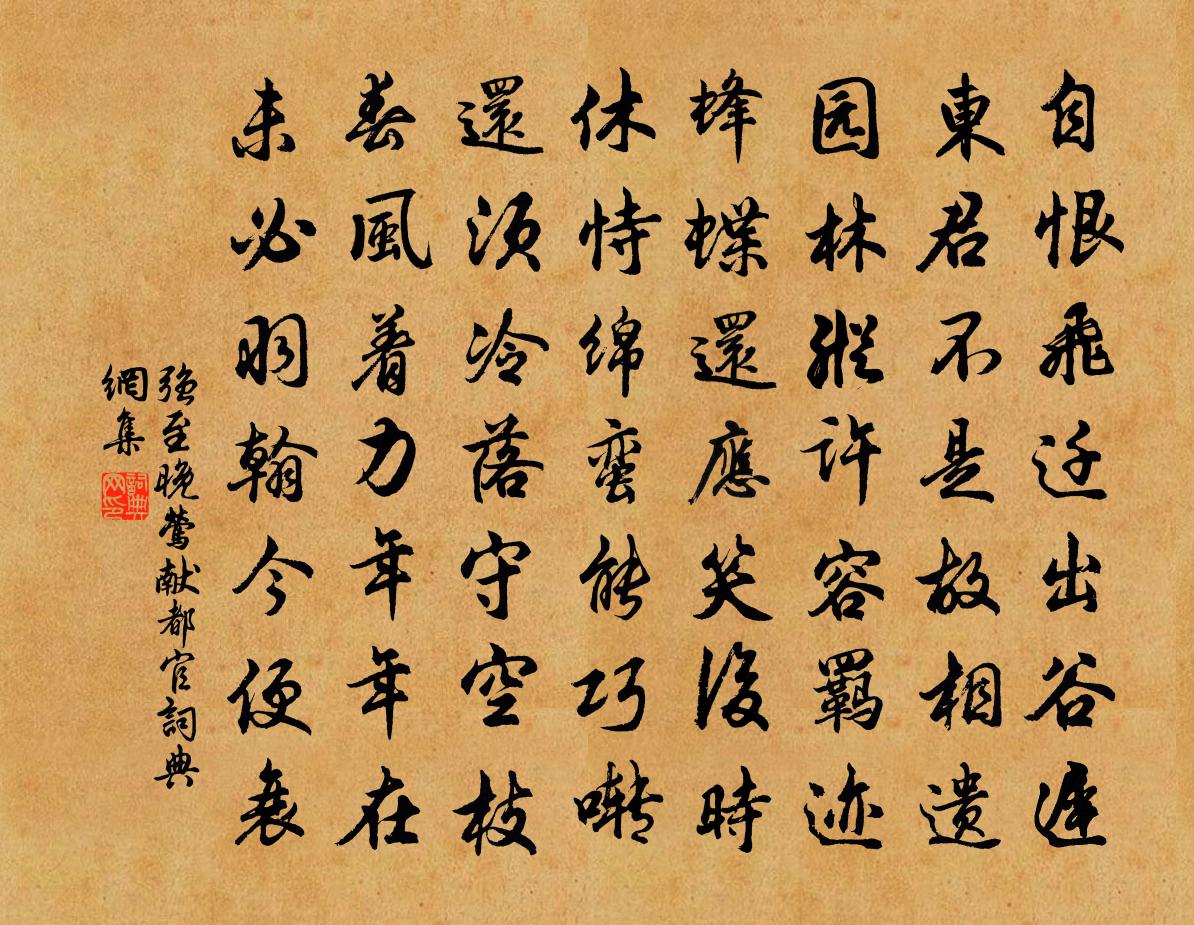 自恨飛迁出谷遲
東君不是故相遗
园林縱许容羈迹
蜂蝶還應笑後時
休恃绵蛮能巧啭
還须冷落守空枝
春風着力年年在
未必羽翰今便衰
強至晚莺献都官詞典
網集
詞典
网印